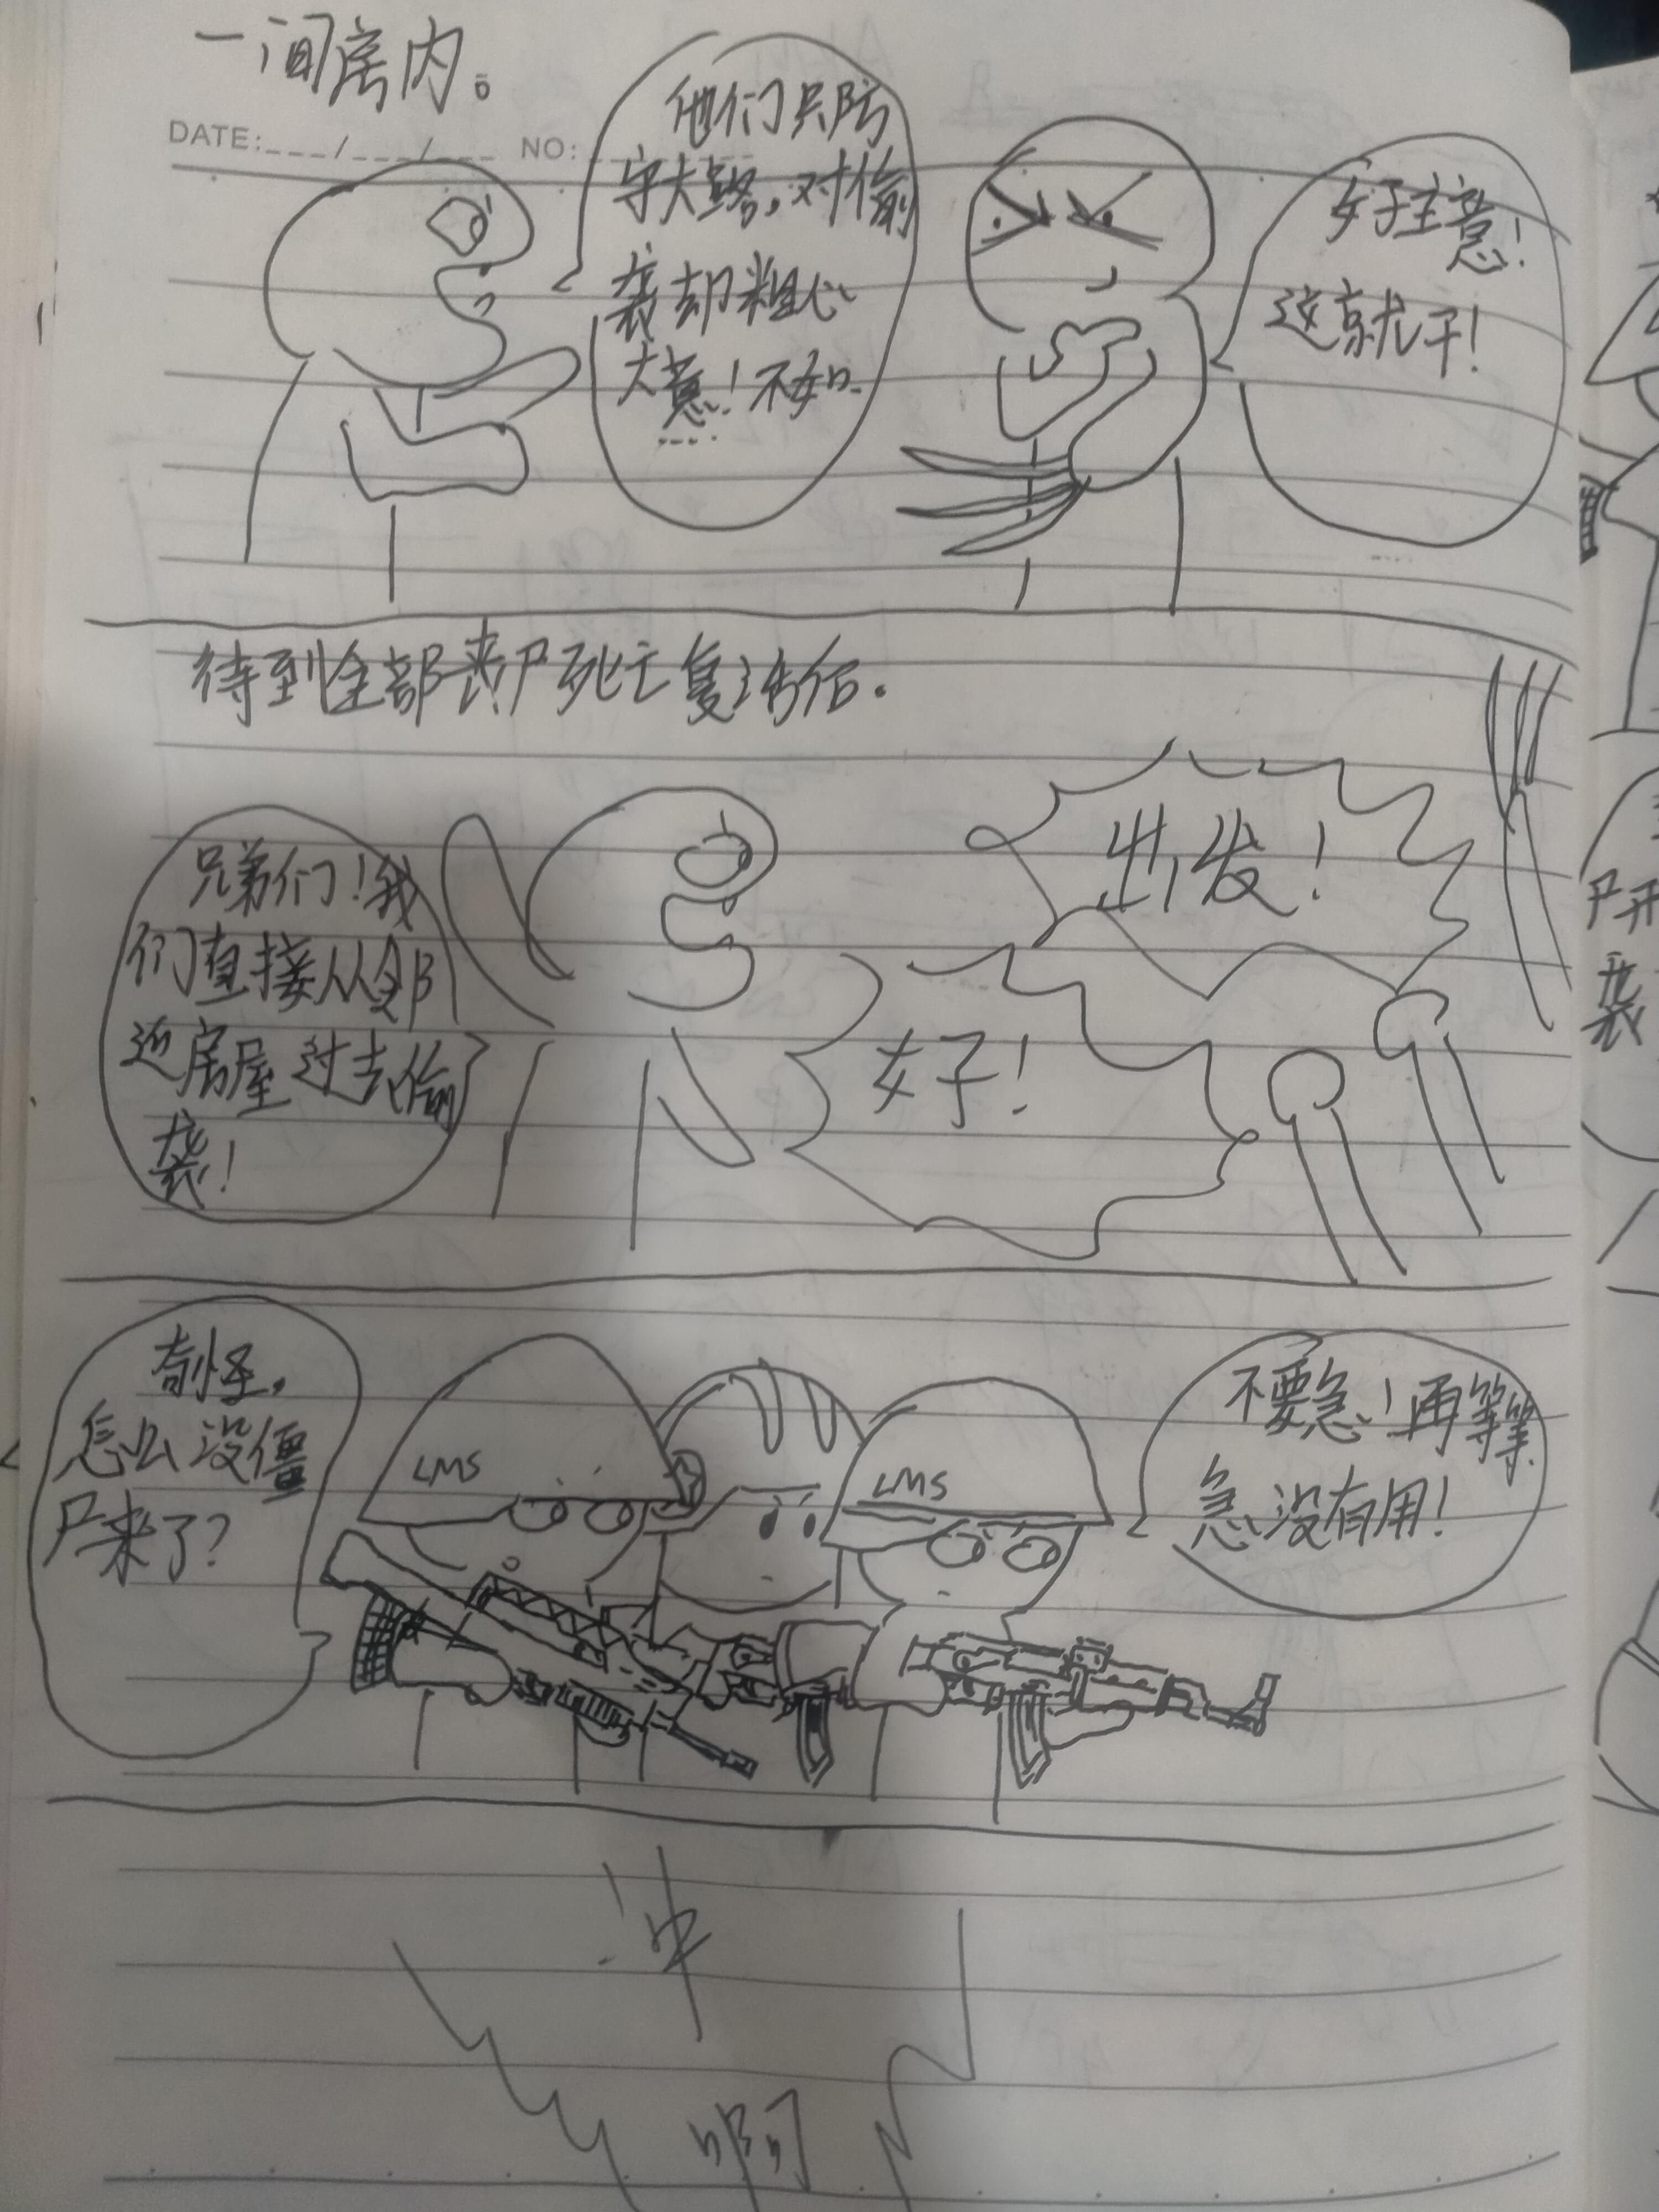 一间房内。
DATE:___/___/___ NO:
他们只防
守大路,对偷
袭却粗心
大意!不如
......
好主意!
这就干!
待到全部丧尸死亡复活后.
兄弟们!我
们直接从邻
近房屋过去偷
袭!
出发!
好!
奇怪,
怎么没僵
尸来了?
LMS
LMS
不要急!再等等
急没有用!
冲
啊
尸开
袭